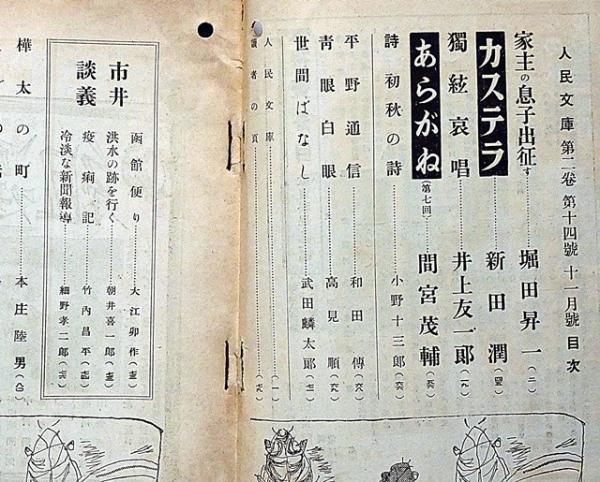 人民文庫 第二卷 第十四號 十一月號 目次
家主の息子出征す……堀田昇一(二)
カステラ……新田潤
獨絃哀唱……井上友一郎
あらがね(第七回)……間宮茂輔
詩 初秋の詩……小野十三郎
平野通信……和田傳
靑眼白眼……高見順
世間ばなし……武田麟太郎
人民文庫
讀者の頁
市井談義
函館便り……大江卯作
洪水の跡を行く……朝井喜一郎
疫痢記……竹內昌平
冷淡な新聞報導……細野孝二郎
樺太の町……本庄陸男